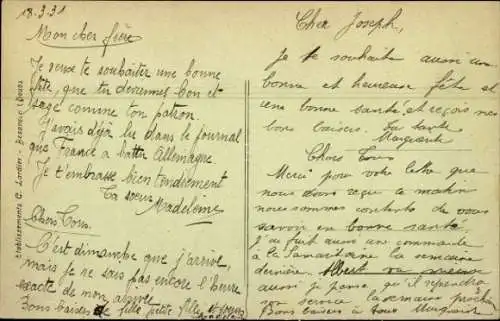 18-3.31
Mon cher frère
Je te souhaiter une bonne
fête, que tu deviennes bon et
sage comme ton patron.
J'avais déjà lu dans le journal
que France a battu Allemagne
Je t'embrasse bien tendrement
Ta soeur Madeleine
Chers Tous.
C'est dimanche que j'arrive,
mais je ne sais pas encore l'heure
exacte de mon arrivée
Bons baisers de petite fille et soeur
Etablissements C. Lardier - Besançon (Doubs)
Cher Joseph,
Je te souhaite aussi une
bonne et heureuse fête et
une bonne santé et reçois mes
bons baisers. Ta tante
Marguerite
Chers Tous
Merci pour votre lettre que
nous avons reçu ce matin
nous sommes contents de vous
savoir en bonne santé.
J'ai fait aussi une commande
à la Samaritaine la semaine
dernière.
aussi je pense qu'il reprendra
son service la semaine proch
Bons baisers à tous Marguerite